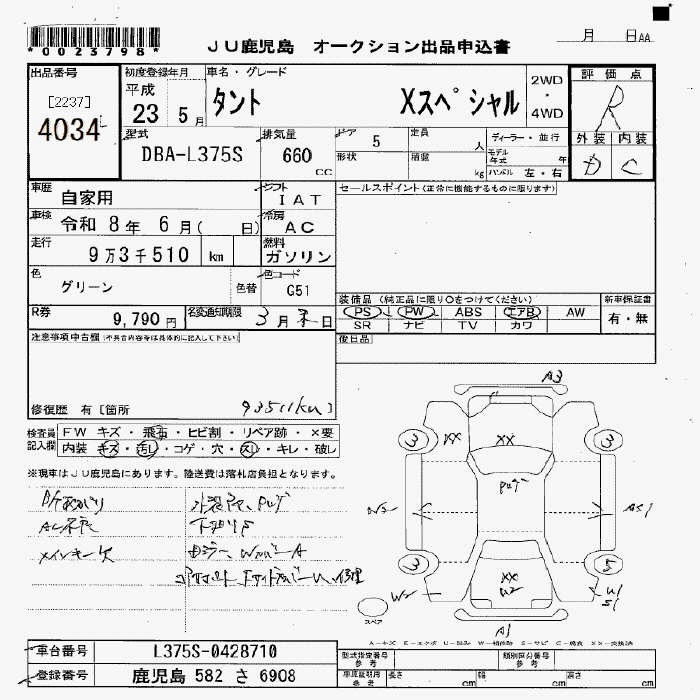 *0023798*
JU鹿児島 オークション出品申込書
月 日AA
出品番号
[2237]
4034
初度登録年月
平成
23 5月
車名・グレード
タント Xスペシャル
2WD
・
4WD
評価点
R
外装 内装
D C
型式
DBA-L375S
排気量
660
CC
ドア 5
定員 人
形状
積載 kg
ディーラー・並行
モデル年式 年
ハンドル 左・右
車歴
自家用
シフト
IAT
車検
令和 8年 6月( 日)
冷房
AC
走行
9万3千510 km
燃料
ガソリン
色
グリーン
色替
色コード
G51
R券
9,790円
名変通知期限
3月 末日
セールスポイント(正常に機能するものに限ります)
装備品(純正品に限り○をつけてください)
PS PW ABS エアB AW
SR ナビ TV カワ
新車保証書
有・無
後日品
注意事項申告欄(不具合内容等は具体的に記入して下さい)
修復歴 有 [箇所
93511km
検査員記入欄
FW キズ・飛石・ヒビ割・リペア跡・×要
内装 キズ・汚れ・コゲ・穴・スレ・キレ・破レ
※現車はJU鹿児島にあります。陸送費は落札店負担となります。
AC不良
メインキー欠
A3
3 XX XX 3
AS1
3 XX 3
W2 U2 U1
S1
A1
スペア
車台番号 L375S-0428710
登録番号 鹿児島 582 さ 6908
型式指定番号
参考
類別区分番号
参考
車庫証明用
参考
長さ cm 幅 cm 高さ cm